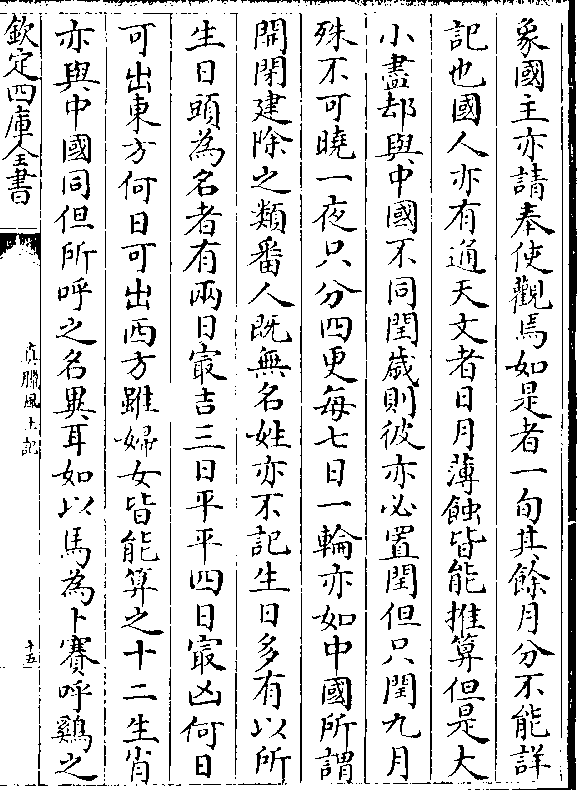 象國主亦請奉使觀焉如是者一旬其餘月分不能詳
記也國人亦有通天文者日月薄蝕皆能推算但是大
小盡却與中國不同閏歲則彼亦必置閏但只閏九月
殊不可曉一夜只分四更每七日一輪亦如中國所謂
開閉建除之類番人既無名姓亦不記生日多有以所
生日頭為名者有兩日㝡吉三日平平四日㝡凶何日
可出東方何日可出西方雖婦女皆能算之十二生肖
亦與中國同但所呼之名異耳如以馬為卜賽呼鷄之
欽定四庫全書
真臘風土記
十五